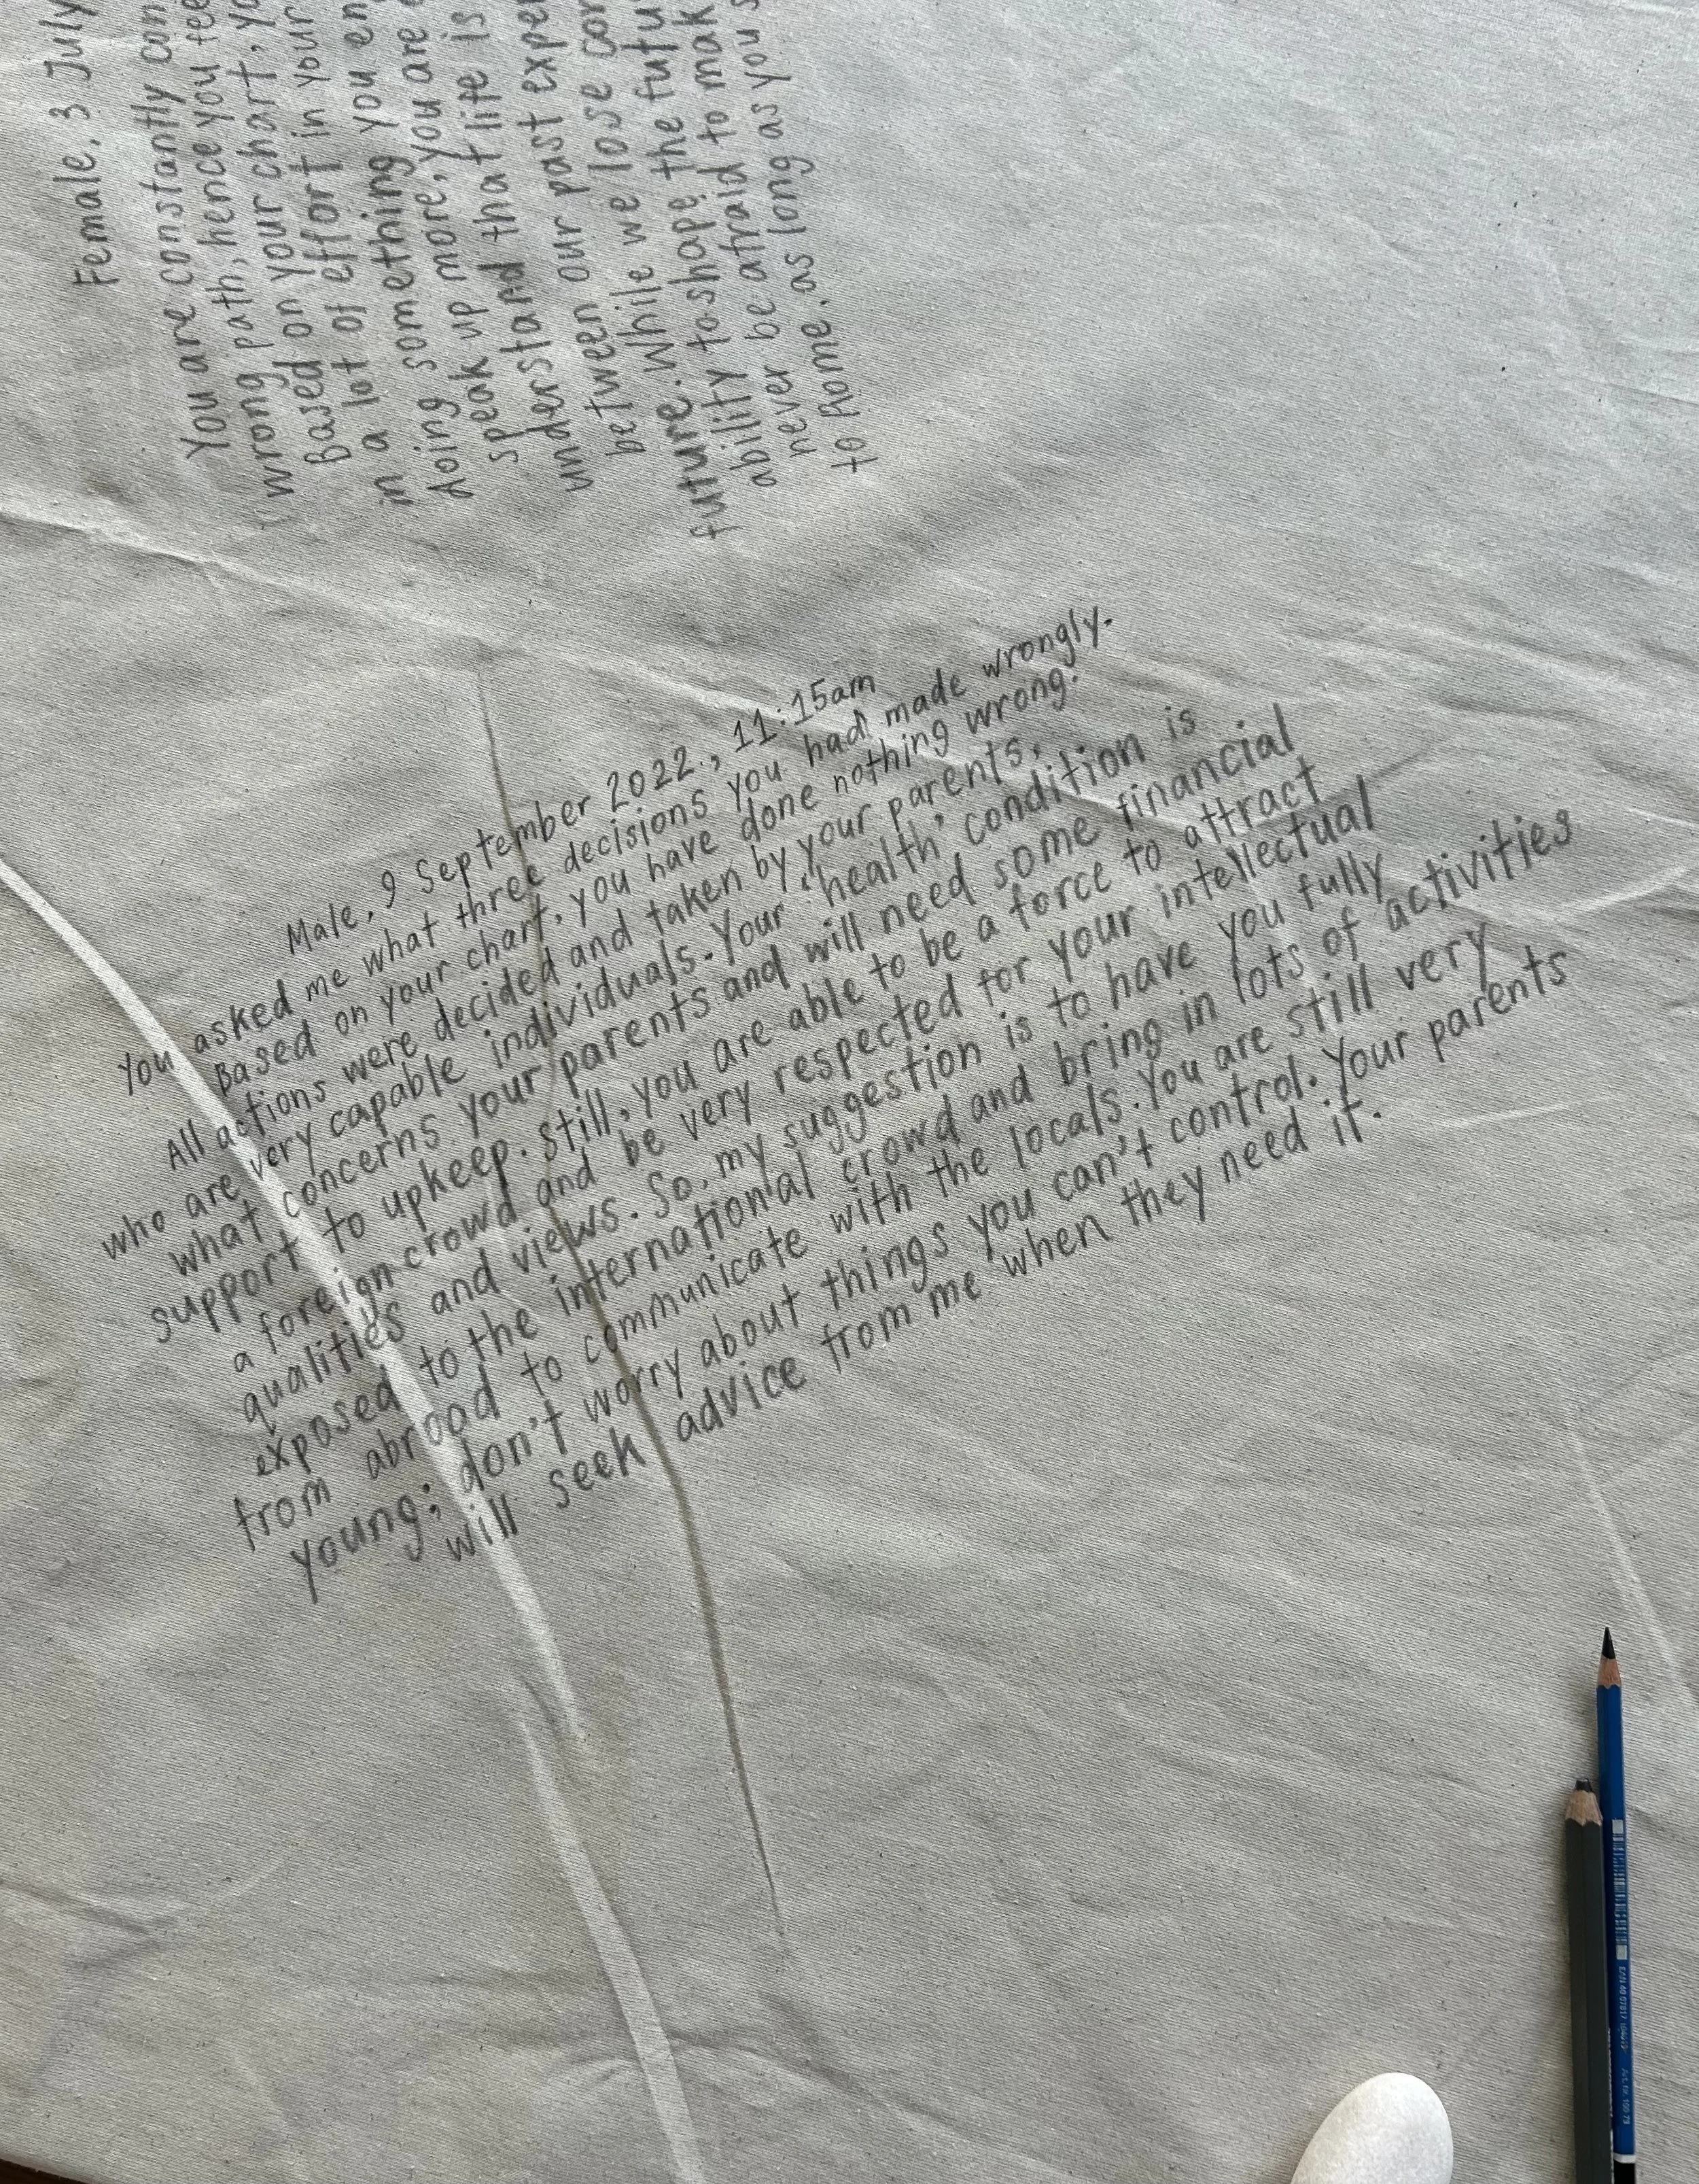 Female, 3 July
You are constantly con
wrong path, hence you fee
Based on your chart, yo
a lot of effort in your
in something you en
doing more, you are
speak up that life is
understand our past exper
between we lose con
future. While the futu
ability to shape to mak
never be afraid
to home. as long as you s
Male, 9 September 2022., 11:15am
You asked me what three decisions you had made wrongly.
Based on your chart, you have done nothing wrong.
All actions were decided and taken by your parents,
who are very capable individuals. Your 'health' condition is
what concerns your parents and will need some financial
support to upkeep. Still, you are able to be a force to attract
a foreign crowd and be very respected for your intellectual
qualities and views. So, my suggestion is to have you fully
exposed to the international crowd and bring in lots of activities
from abrood to communicate with the locals. You are still very
young; don't worry about things you can't control. Your parents
will seek advice from me when they need it.